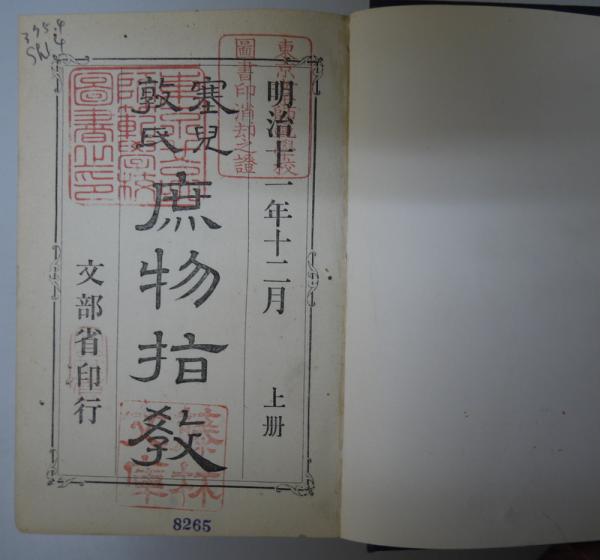 明治十一年十二月
上册
塞兒
敦氏
庶物指教
文部省印行
東京女子
師範學校
圖書之印
圖書印消却之證
8265